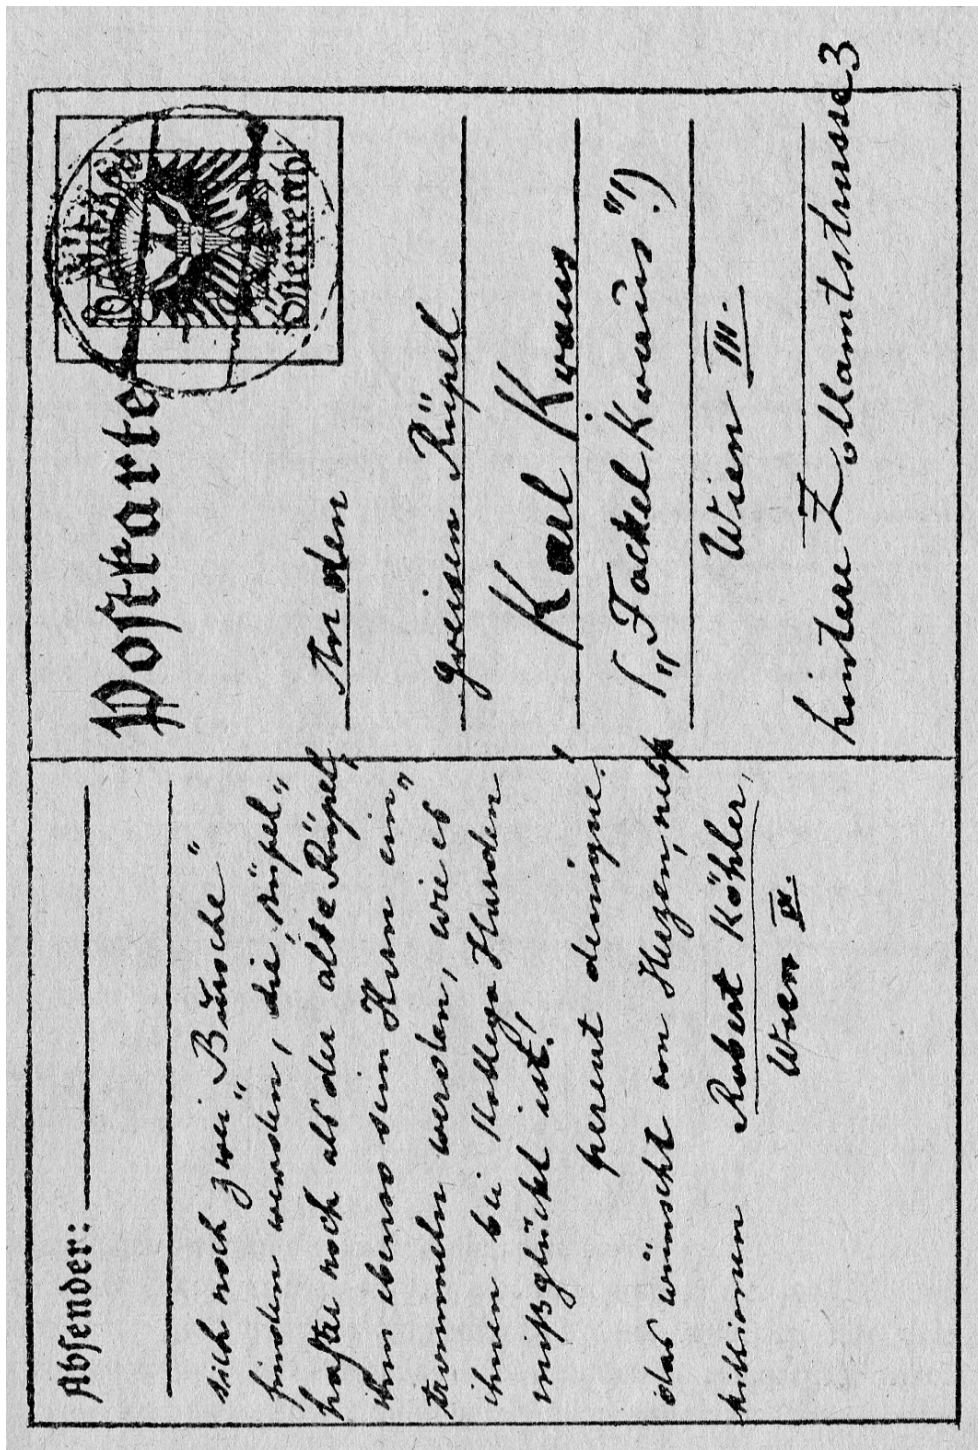 Absender:
sich noch zwei „Bursche“
finden werden, die „rüpel„
hafter noch als der alte Rüpel,
ihm ebenso sein Hirn ein„
trommeln werden, wie es
ihnen bei Kollege Harden
mißglückt ist!
pereat denique!
das wünscht von Herzen, nebst
Millionen Robert Köhler,
Wien IX.
Postkarte
Österreich
An den
greisen Rüpel
Karl Kraus
(„Fackelkraus“!)
Wien III.
hintere Zollamtstrasse 3